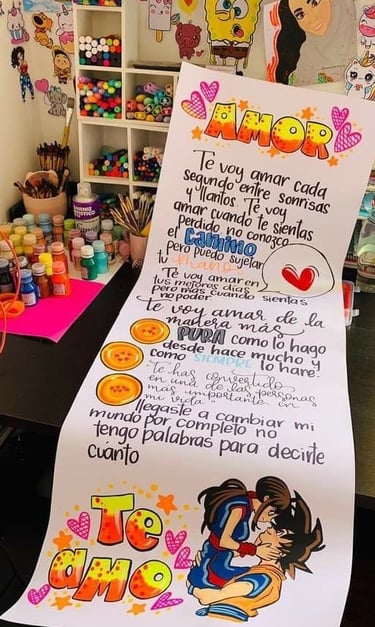 AMOR
Te voy amar cada
segundo entre sonrisas
y llantos. Te voy
amar cuando te sientas
perdido no conozco
el CAMINO
pero puedo sujetar
tu mano
Te voy amar en
tus mejores días
pero más cuando sientas
no poder
te voy amar de la
madera más
PURA como lo hago
desde hace mucho y
como SIEMPRE lo haré
te has convertido
en una de las personas
más importante en
mi vida
llegaste a cambiar mi
mundo por completo no
tengo palabras para decirte
cuánto
Te
amo